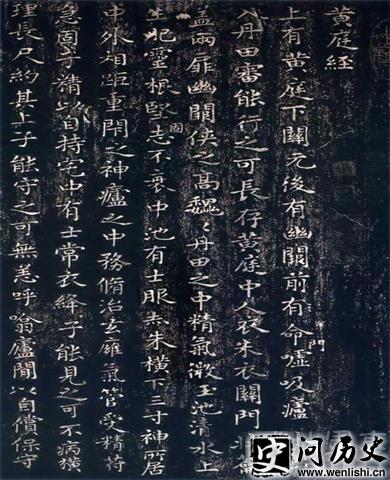 黄庭経
上有黄庭下關元後有幽闕前有命門噓吸廬
外丹田審能行之可長存黄庭中人衣朱衣關門壯
盖兩扉幽闕俠之高魏〻丹田之中精氣微玉池清水上
生肥靈根堅固志不衰中池有士服赤朱横下三寸神所居
中外相距重閇之神廬之中務脩治玄廱氣管受精符
急固子精以自持宅中有士常衣絳子能見之可不病横
理長尺約其上子能守之可無恙呼噏廬閒以自償保守
史问历史
www.wenlishi.cn